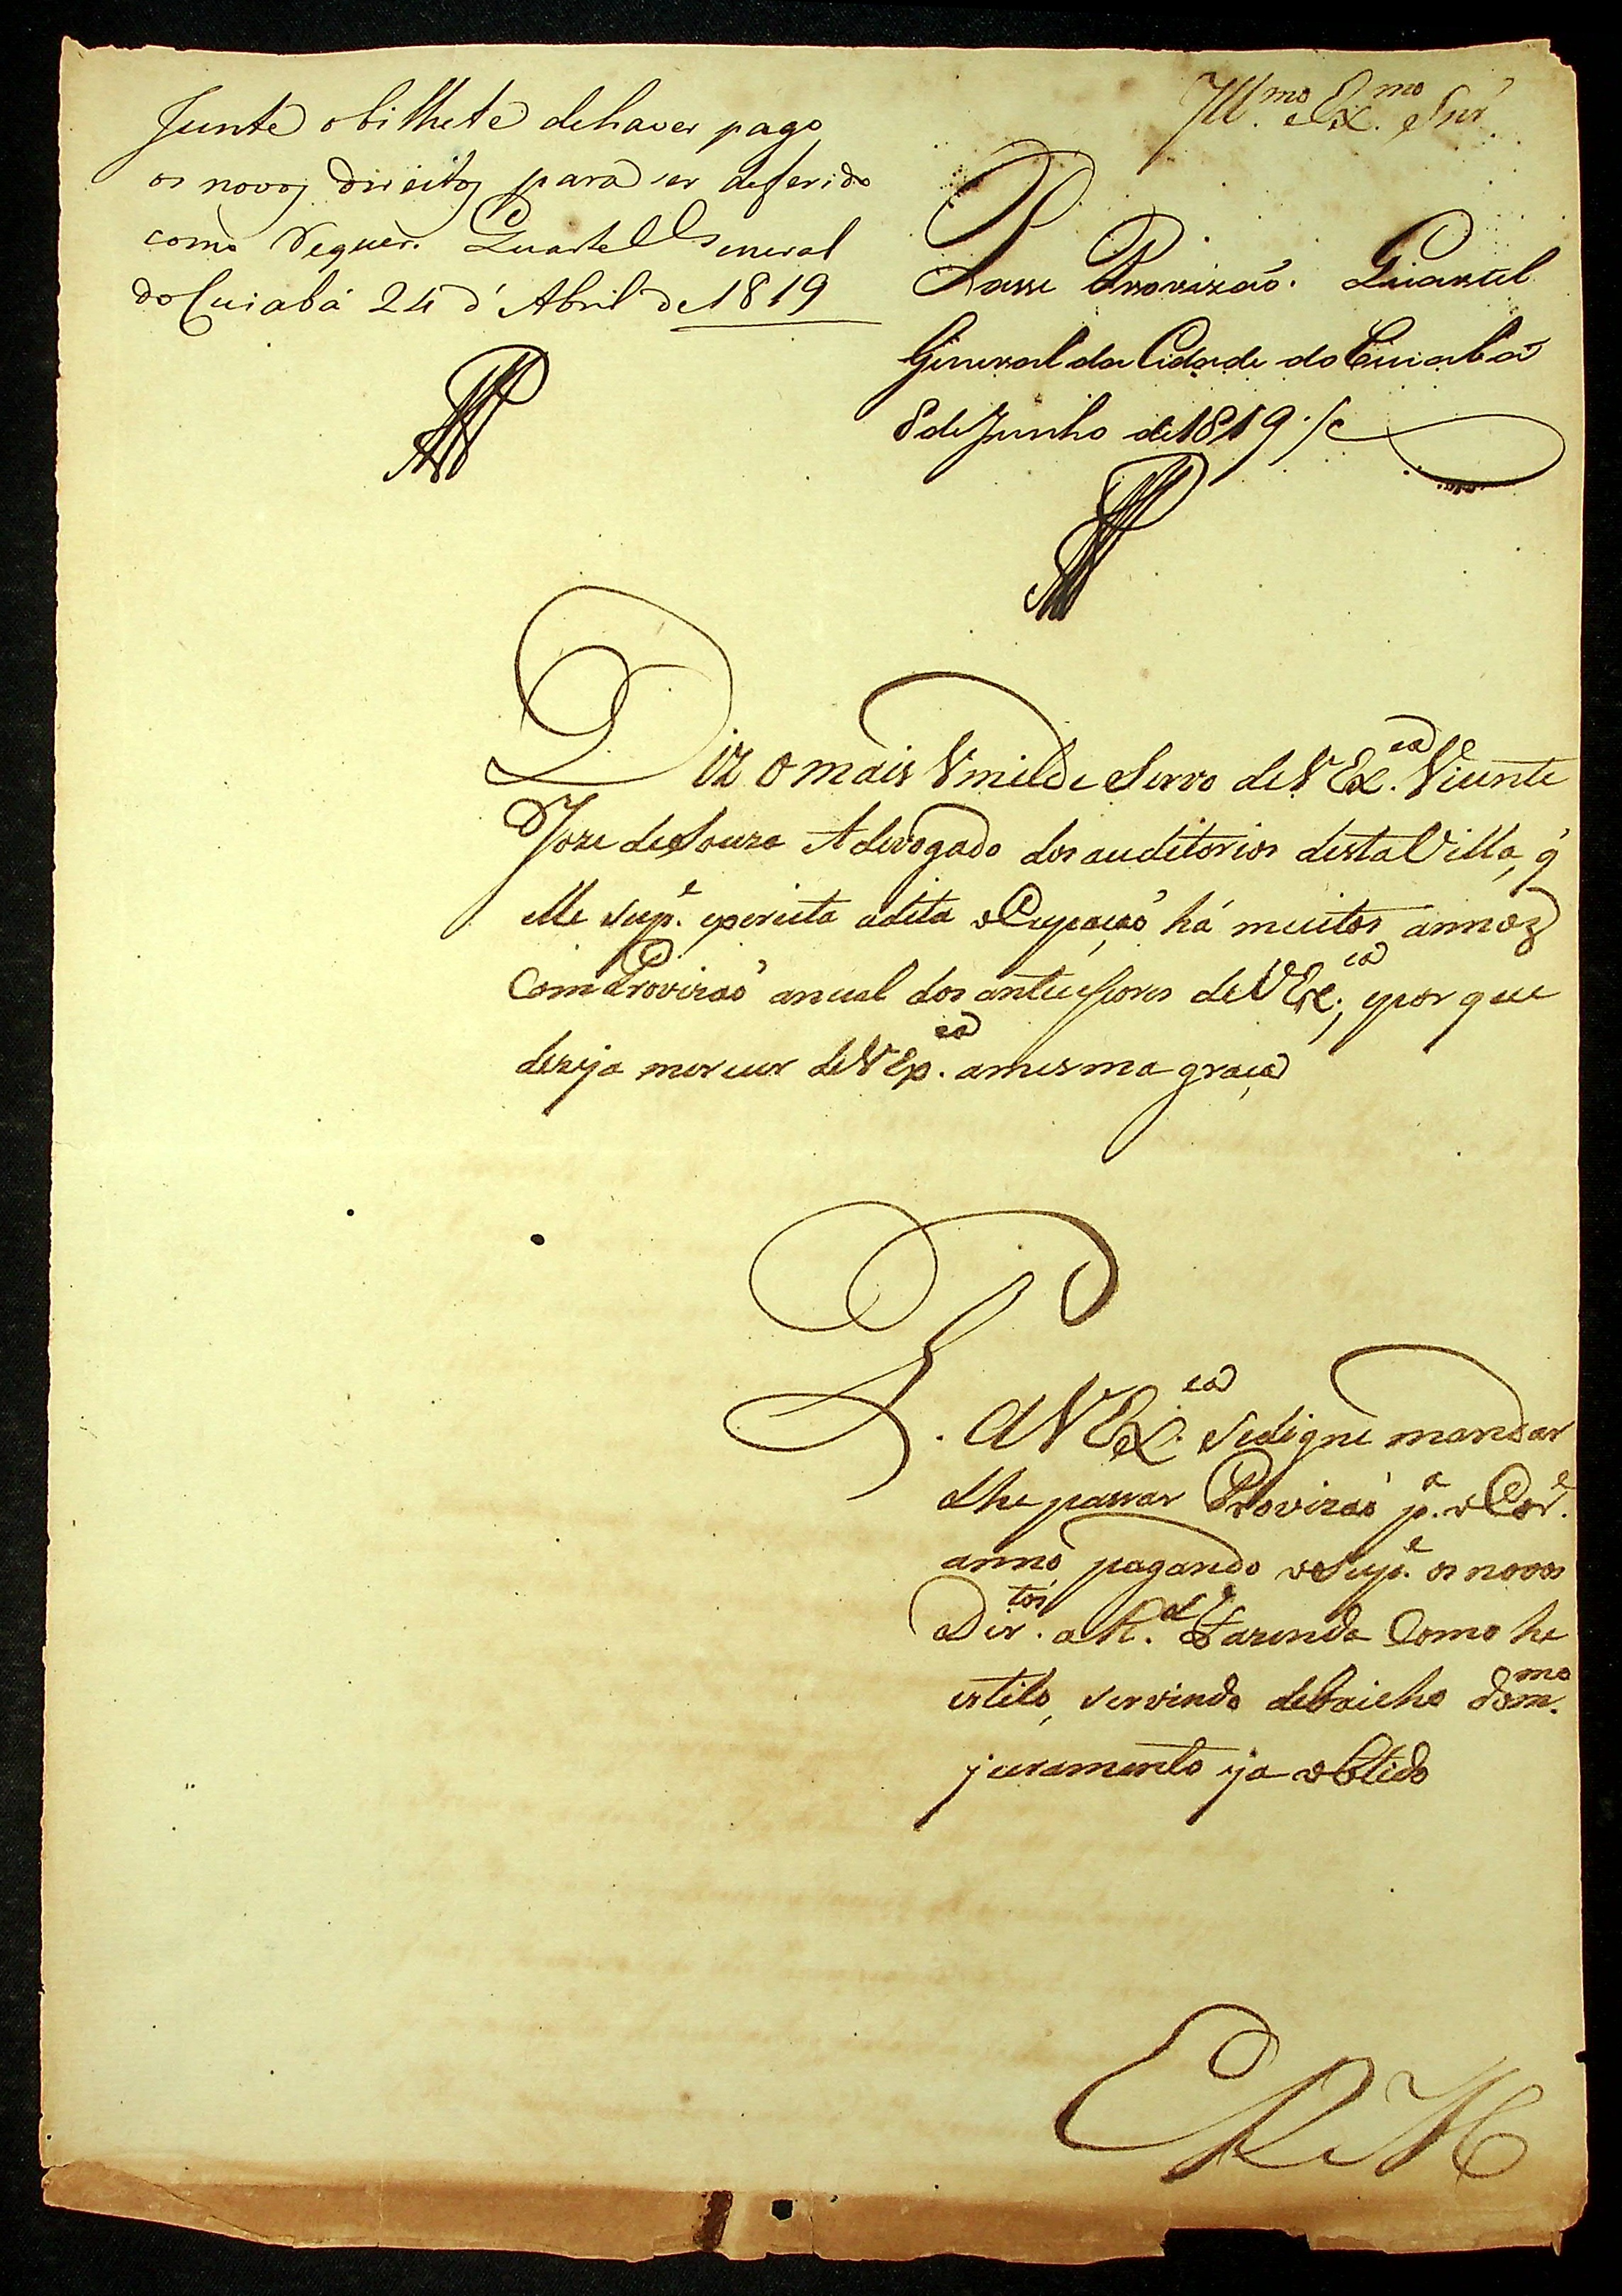 Ill.mo Ex.mo Snr.
Junte o bilhete dehaver pago
os novos direitos para ser deferido
como requer. Quartel General
do Cuiabá 24 d'Abril de 1819
Passe Provizaõ. Quartel
General da Cidade do Cuiabá
8 de Junho de 1819
Diz o mais Vmilde Servo de V Ex.ca Vicente
Joze de Souza Advogado dos auditorios desta Villa, q̃
elle Sup.e exercita adita oCupaçaõ há muitos annos
Com Provizaõ anual dos antecessores de V Ex.ca, eporque
dezeja merecer de V Ex.ca amesma graça
P. A V Ex.ca Sedigne mandar
lhe passar Provizaõ p.a o Cor.e
anno pagando o Sup.e os novos
Dir.tos a R.al Fazenda Como he
estilo, servindo debaicho dom.mo
juramento ja obtido
E R M